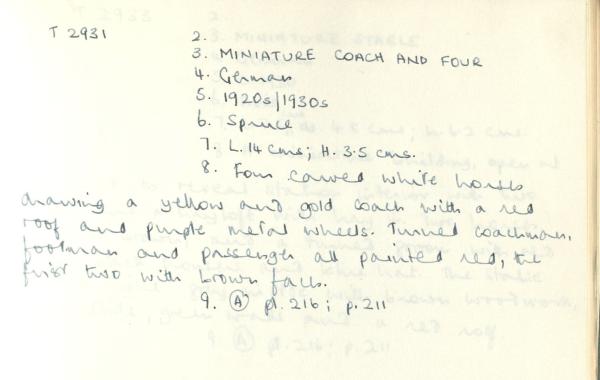 T 2931
2.
3. MINIATURE COACH AND FOUR
4. German
5. 1920s/1930s
6. Spruce
7. L. 14 cms; H. 3.5 cms.
8. Four carved white horses
drawing a yellow and gold coach with a red
roof and purple metal wheels. Turned coachman,
footman and passenger all painted red; the
first two with brown faces.
9. (A) pl. 216; p. 211